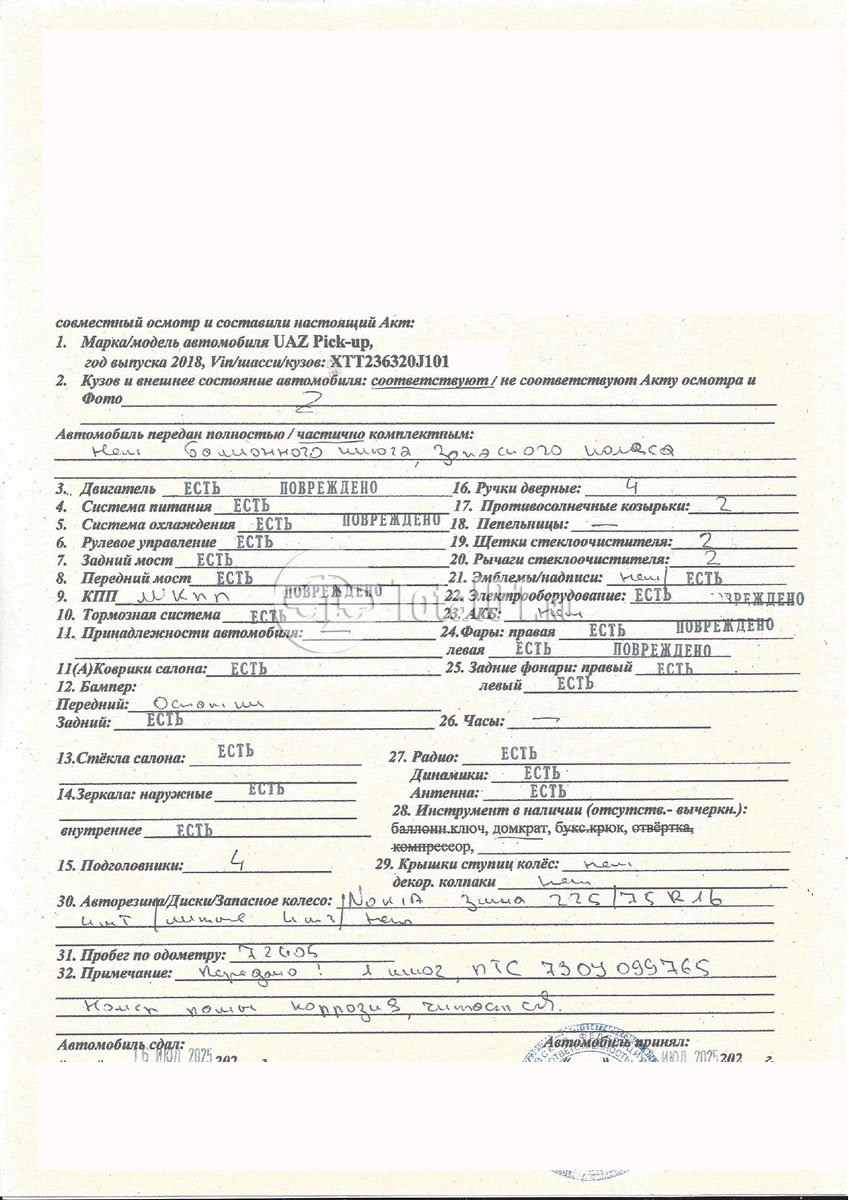 совместный осмотр и составили настоящий Акт:
1. Марка/модель автомобиля UAZ Pick-up,
год выпуска 2018, Vin/шасси/кузов: XTT236320J101
2. Кузов и внешнее состояние автомобиля: соответствуют / не соответствуют Акту осмотра и
Фото
Автомобиль передан полностью / частично комплектным:
Нет баллонного ключа, запасного колеса
3. Двигатель ЕСТЬ ПОВРЕЖДЕНО 16. Ручки дверные: 4
4. Система питания ЕСТЬ 17. Противосолнечные козырьки: 2
5. Система охлаждения ЕСТЬ ПОВРЕЖДЕНО 18. Пепельницы: —
6. Рулевое управление ЕСТЬ 19. Щетки стеклоочистителя: 2
7. Задний мост ЕСТЬ 20. Рычаги стеклоочистителя: 2
8. Передний мост ЕСТЬ 21. Эмблемы/надписи: нет/ ЕСТЬ
9. КПП МКПП ПОВРЕЖДЕНО 22. Электрооборудование: ЕСТЬ ПОВРЕЖДЕНО
10. Тормозная система ЕСТЬ 23. АКБ: нет
11. Принадлежности автомобиля: — 24.Фары: правая ЕСТЬ ПОВРЕЖДЕНО
левая ЕСТЬ ПОВРЕЖДЕНО
11(А)Коврики салона: ЕСТЬ 25. Задние фонари: правый ЕСТЬ
12. Бампер: левый ЕСТЬ
Передний: Остатки
Задний: ЕСТЬ 26. Часы: —
13.Стёкла салона: ЕСТЬ 27. Радио: ЕСТЬ
Динамики: ЕСТЬ
14.Зеркала: наружные ЕСТЬ Антенна: ЕСТЬ
28. Инструмент в наличии (отсутств.- вычеркн.):
внутреннее ЕСТЬ баллонн.ключ, домкрат, букс.крюк, отвёртка,
компрессор,
15. Подголовники: 4 29. Крышки ступиц колёс: нет
декор. колпаки нет
30. Авторезина/Диски/Запасное колесо: Nokia Зима 225/75 R16
4шт /литые 4шт/ нет
31. Пробег по одометру: 72605
32. Примечание: Передано! 1 ключ, ПТС 73ОУ 099765
Номер рамы коррозия, читается.
Автомобиль сдал: Автомобиль принял:
16 ИЮЛ 2025 202 г. ИЮЛ 2025 202 г.